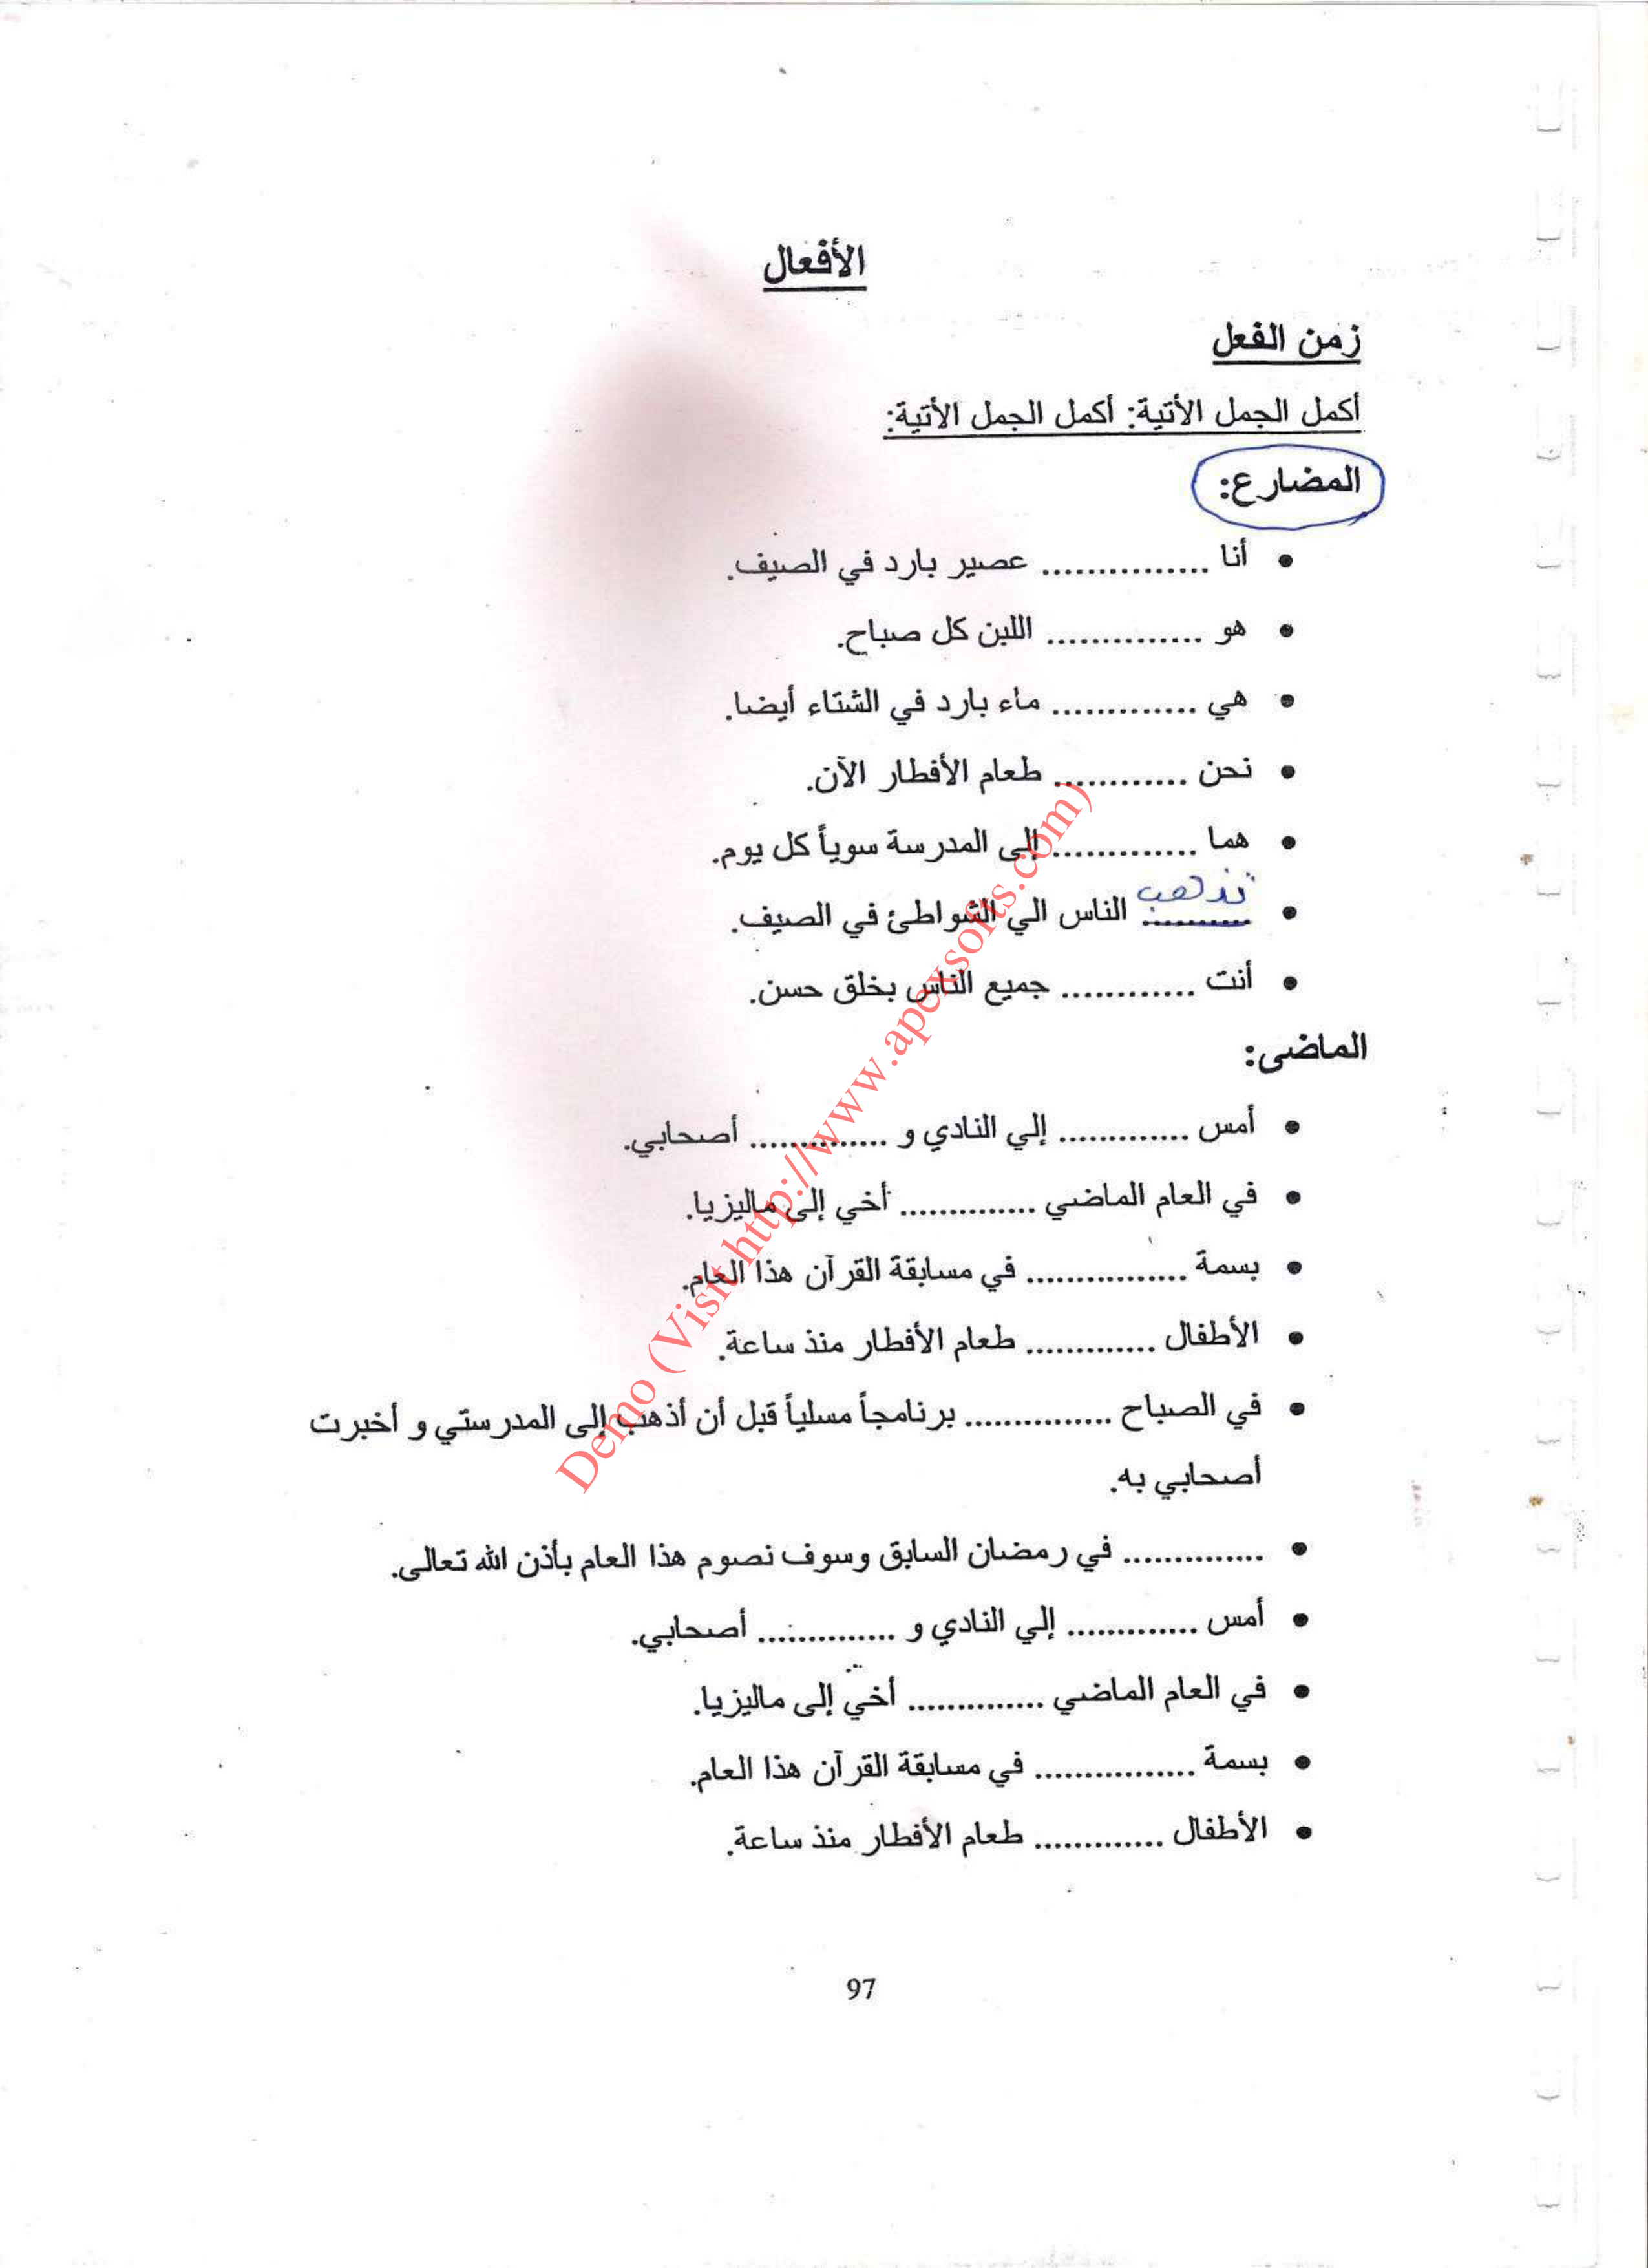 الأفعال
زمن الفعل
أكمل الجمل الأتية: أكمل الجمل الأتية:
المضارع:
• أنا ............... عصير بارد في الصيف.
• هو .............. اللبن كل صباح.
• هي ............. ماء بارد في الشتاء أيضا.
• نحن ............ طعام الأفطار الآن.
• هما ............. إلى المدرسة سوياً كل يوم.
• تذهب .......... الناس الي الشواطئ في الصيف.
• أنت ............ جميع الناس بخلق حسن.
الماضى:
• أمس ............ إلي النادي و ............. أصحابي.
• في العام الماضي ............. أخي إلى ماليزيا.
• بسمة ............... في مسابقة القرآن هذا العام.
• الأطفال ............ طعام الأفطار منذ ساعة.
• في الصباح .............. برنامجاً مسلياً قبل أن أذهب إلى المدرستي و أخبرت
أصحابي به.
• ............. في رمضان السابق وسوف نصوم هذا العام بأذن الله تعالى.
• أمس ............ إلي النادي و ............. أصحابي.
• في العام الماضي ............. أخي إلى ماليزيا.
• بسمة ............... في مسابقة القرآن هذا العام.
• الأطفال ............ طعام الأفطار منذ ساعة.
97
Demo (Visit http://www.apexsofts.com)